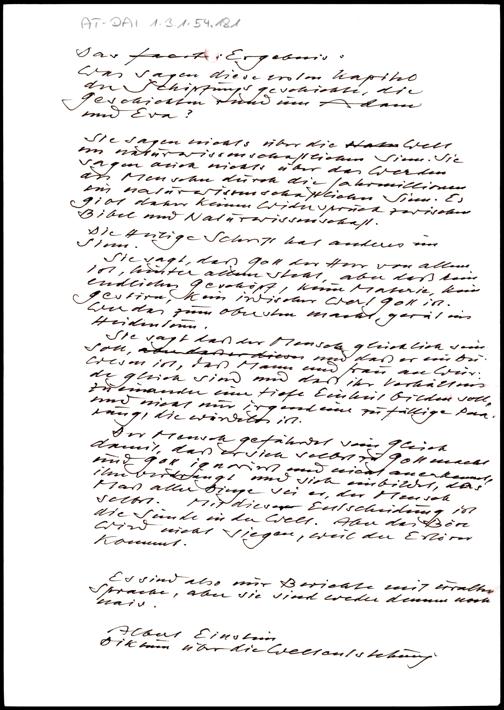 AT-DAI 1.3.1.54.181
Das Ergebnis:
Was sagen diese ersten Kapitel
der Schöpfungsgeschichte, die
Geschichten rund um Adam
und Eva?
Sie sagen nichts über die Welt
im naturwissenschaftlichen Sinn. Sie
sagen auch nichts über das Werden
des Menschen durch die Jahrmillionen
im naturwissenschaftlichen Sinn. Es
gibt daher keinen Widerspruch zwischen
Bibel und Naturwissenschaft.
Die Heilige Schrift hat anderes im
Sinn.
Sie sagt, daß Gott der Herr von allem
ist, hinter allem steht, aber daß kein
endliches Geschöpf, keine Materie, kein
Gestirn, kein irdischer Wert Gott ist.
Wer das zum obersten macht, gerät ins
Heidentum.
Sie sagt daß der Mensch glücklich sein
soll, und daß er ein
ist, daß Mann und Frau an Wür-
de gleich sind und daß ihr Verhältnis
zueinander eine tiefe Einheit bilden soll,
und nicht nur irgendeine zufällige Paa-
rung, die wieder ist.
Der Mensch gefährdet sein Glück
damit, daß er sich selbst zu Gott macht
und Gott ignoriert und nicht anerkennt,
ihn und sich einbildet, das
Maß aller Dinge sei er, der Mensch
selbst. Mit dieser Entscheidung ist
die Sünde in der Welt. Aber das Böse
wird nicht siegen, weil der Erlöser
kommt.
Es sind also nur Berichte mit uralter
Sprache, aber sie sind weder dumm noch
naiv.
Albert Einstein
Diktum über die Weltentstehung